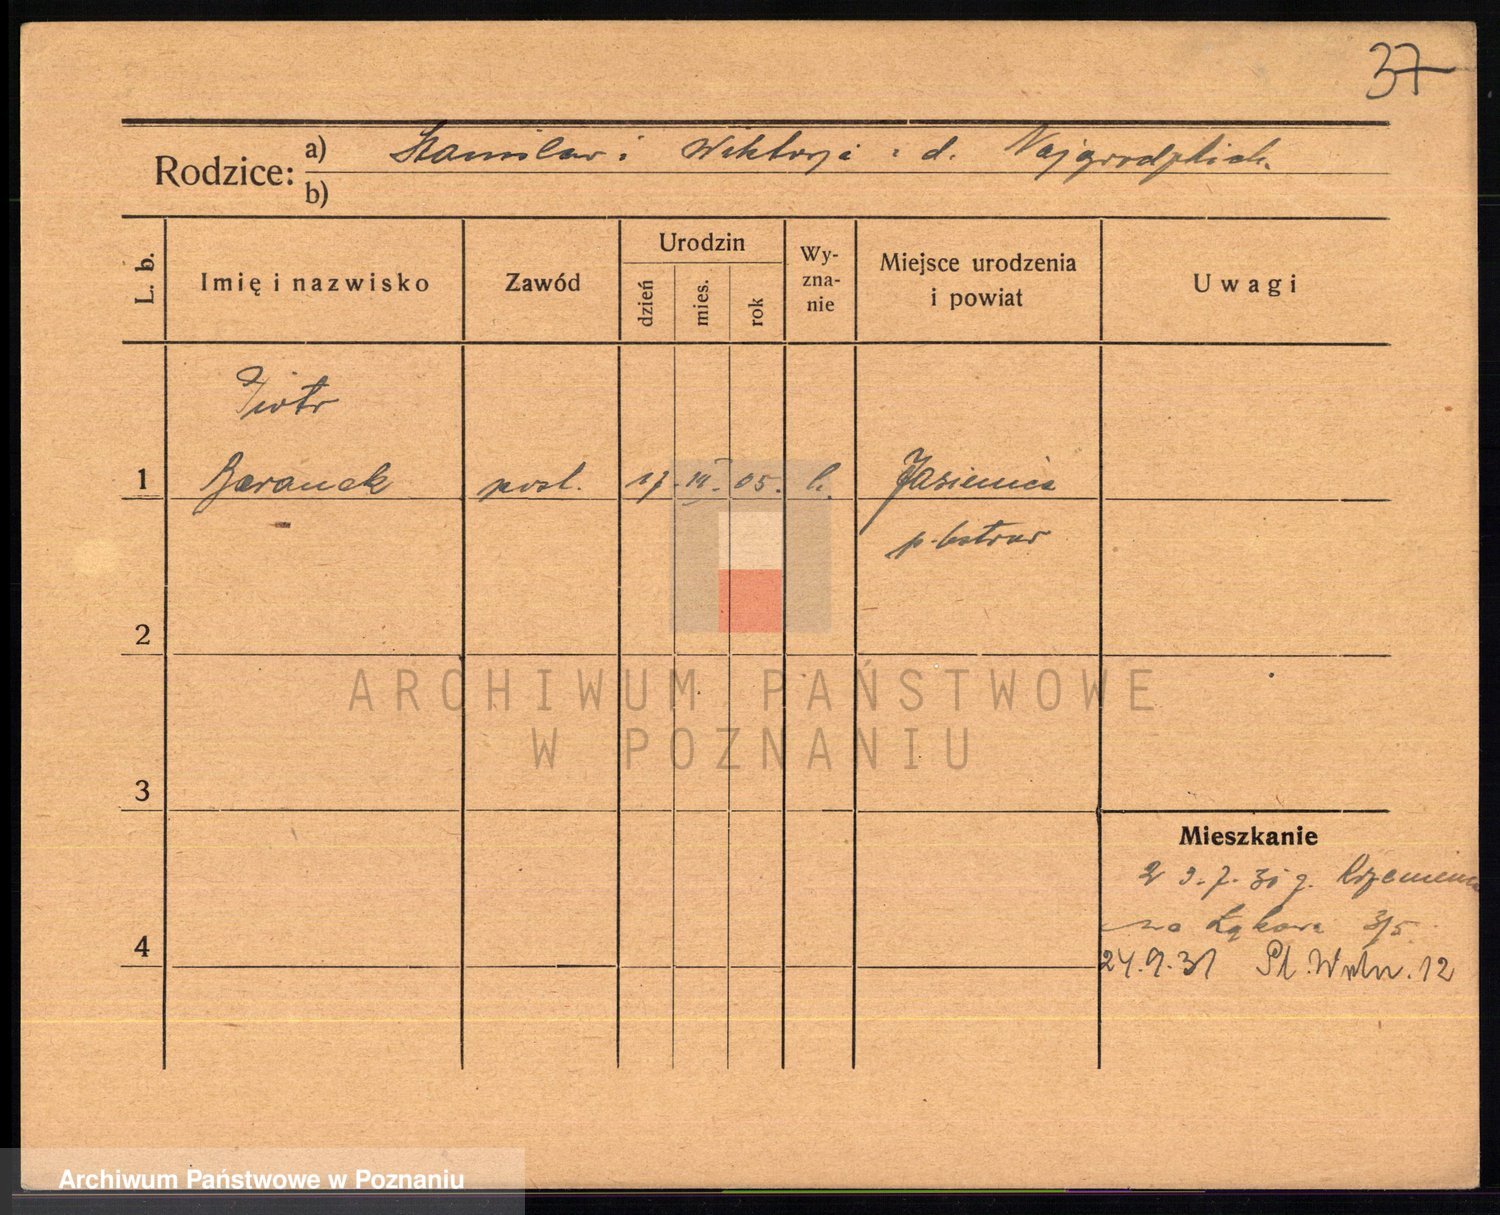 37
Rodzice: a) Stanisław i Wiktorja z d. Najgrodzkich
b)
L. b.
Imię i nazwisko
Zawód
Urodzin
dzień
mies.
rok
Wy-
zna-
nie
Miejsce urodzenia
i powiat
Uwagi
Piotr
1 Baranek post. 17. III. 05. k. Jasienica
p. Ostrów
2
3
4
Mieszkanie
2 9. 7. 31
na Łąkowa 3/5
24.9.31 Pl. Woln. 12
ARCHIWUM PAŃSTWOWE
W POZNANIU
Archiwum Państwowe w Poznaniu